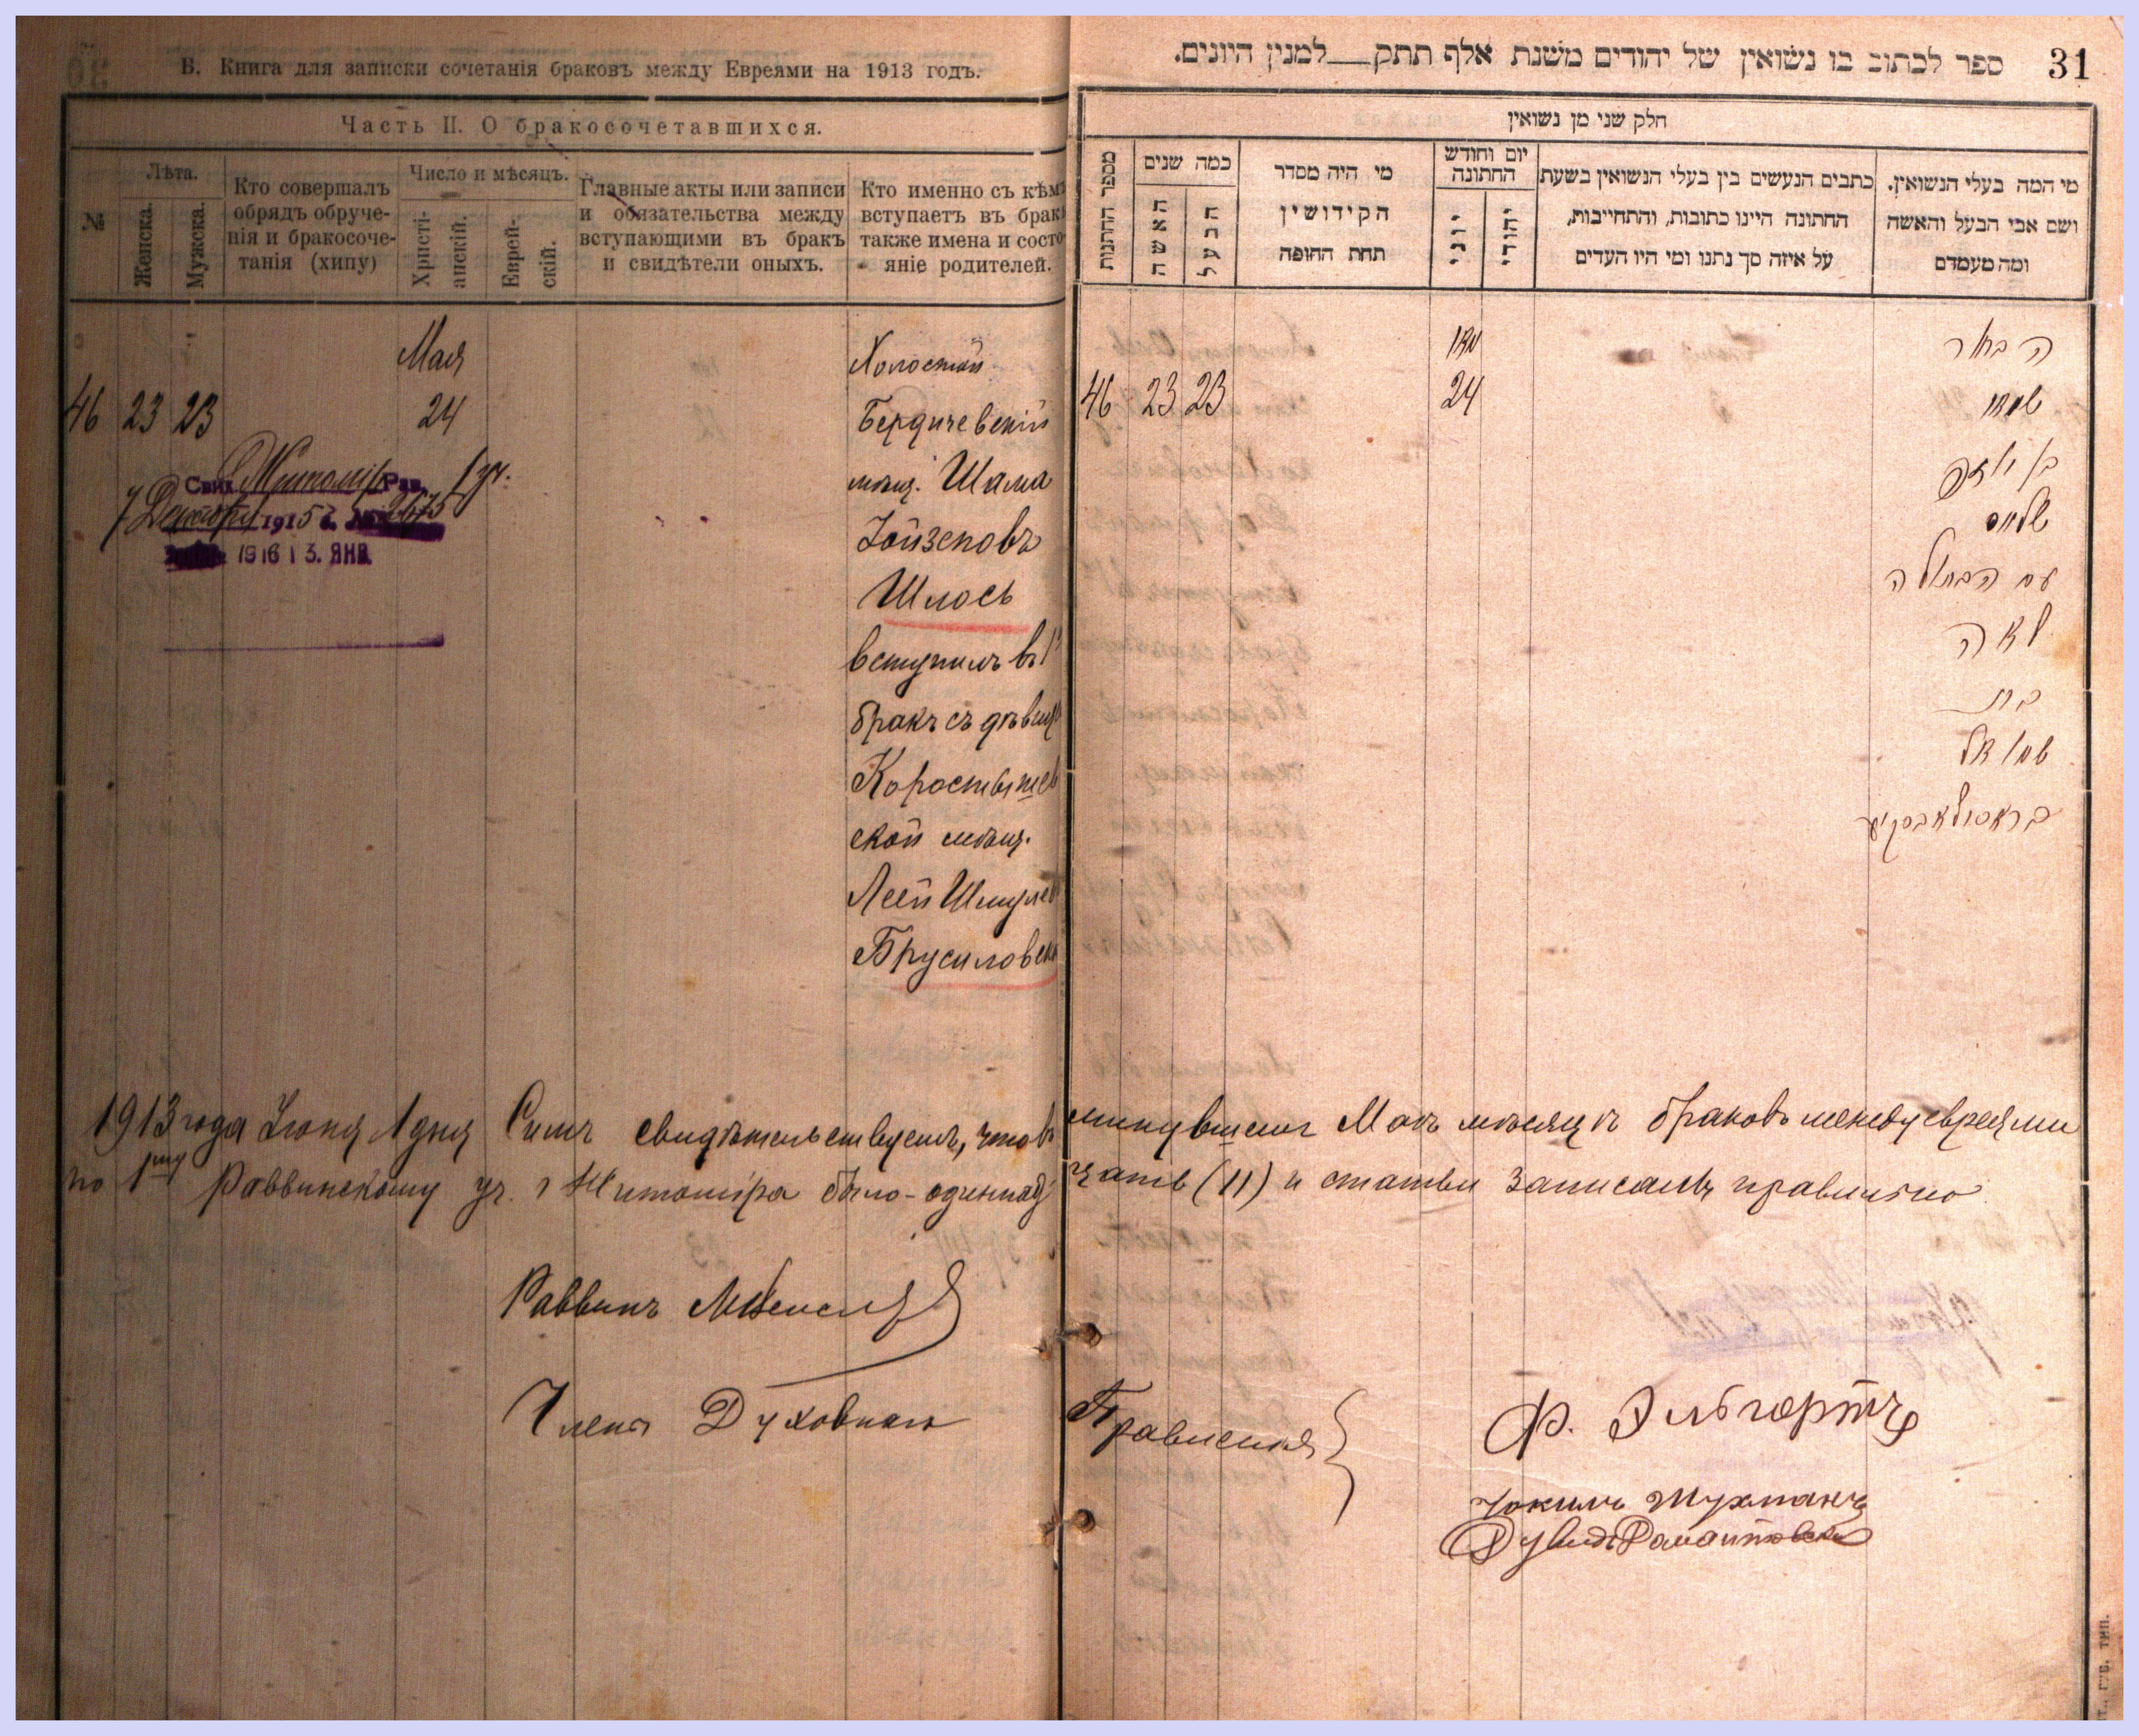 В. Книга для записки сочетанія браковъ между Евреями на 1913 годъ.
Часть II. О бракосочетавшихся.
№
Лѣта.
Женска.
Мужска.
Кто совершалъ
обрядъ обруче-
нія и бракосоче-
танія (хипу)
Число и мѣсяцъ.
Христі-
анскій.
Еврей-
скій.
Главные акты или записи
и обязательства между
вступающими въ бракъ
и свидѣтели оныхъ.
Кто именно съ кѣмъ
вступаетъ въ бракъ
также имена и состо-
яніе родителей.
46 23 23
Мая
24
1915
1916 13. ЯНВ.
Холостой
Бердичевскій
мѣщ. Шама
Іойзеповъ
Шлось
вступилъ въ 1
бракъ съ дѣвиц
Коростышев
ской мѣщ.
Леей Шмулев
Брусиловск
31
ספר לכתוב בו נשואין של יהודים משנת אלף תתק למנין היונים.
חלק שני מן נשואין
מספר החתונות
כמה שנים
האשה
הבעל
מי היה מסדר
הקידושין
תחת החופה
יום וחודש
החתונה
יוני
יהודי
כתבים הנעשים בין בעלי הנשואין בשעת
החתונה היינו כתובות, והתחייבות,
על איזה סך נתנו ומי היו העדים
מי המה בעלי הנשואין.
ושם אבי הבעל והאשה
ומה מעמדם
46 23 23
מאי
24
הבחור
שמאי
בן יוזפ
שליוס
עם הבתולה
לאה
בת
שמואל
בראסולאבסקיע
1913 года Іюня 1 дня Симъ свидѣтельствуемъ, что въ минувшемъ Маѣ мѣсяцѣ браковъ между евреями
по 1му Раввинскому уч. г Житоміра было - одиннадцать (11) и статьи записаны правильно
Раввинъ
Члены Духовнаго Правленія
Ф. Эльбортъ
Іокимъ Шухманъ
Дувидъ